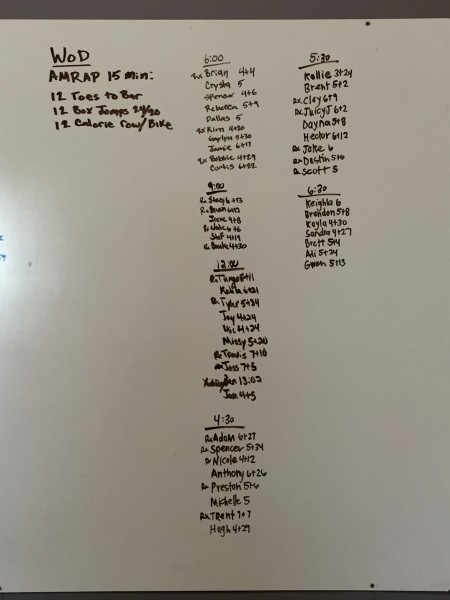 WOD
AMRAP 15 min:
12 Toes to Bar
12 Box Jumps 24/20
12 Calorie row/Bike
6:00
Rx Brian 4+4
Crysta 5
Spencer 4+6
Rebecca 5+9
Dallas 5
Rx Kim 4+20
5+30
Jamie 6+17
Rx Bobbie 4+29
Curtis 6+22
9:00
Rx
Rx Brian
4+8
Rx Nate 6+6
Stef 4+19
Rx Brooke 4+30
12:00
Rx
Kayla 6+21
Rx Tyler 5+34
Jay 4+24
Vic 4+24
Missy 5+20
Rx Travis 7+10
Rx Jess 7+5
Jan 13:02
Jose 4+5
4:30
Rx Adam 6+27
Rx Spencer 5+34
Rx Nicole 4+12
Anthony 6+26
Rx Preston 5+6
Michelle 5
Rx Trent 7+7
Hugh 4+29
5:30
Kallie 3+24
Brent 5+2
Rx Clay 6+9
Rx Juicy J 6+2
Dayna 5+8
Hector 6+12
Rx Jake 6
Rx Dustin 5+6
Rx Scott 5
6:30
Keighla 6
Brandon 5+8
Kayla 4+30
Sandra 4+27
Brett 5+4
Ali 5+24
Gwen 5+13